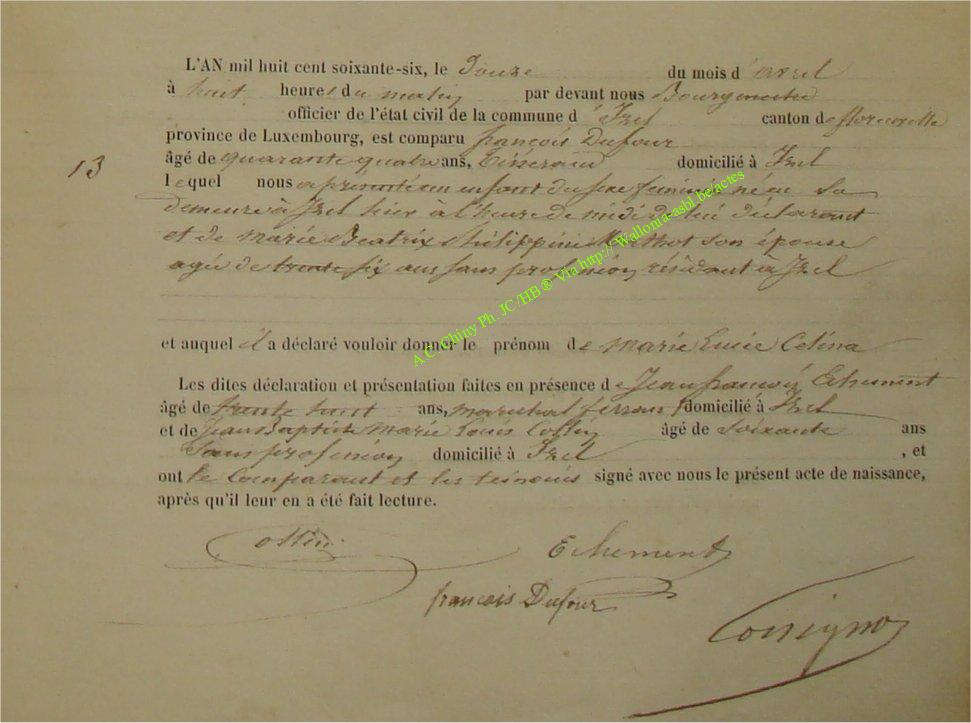 L'AN mil huit cent soixante-six, le Douze du mois d'avril
à huit heures du matin par devant nous Bourgmestre
officier de l'état civil de la commune d'Izel canton de florenville
province de Luxembourg, est comparu françois Dufour
âgé de quarante quatre ans, Tisserand domicilié à Izel
13
lequel nous a présenté un enfant du sexe feminin née en Sa
demeure à Izel hier à l'heure de midi de lui déclarant
et de Marie Beatrix Philippine Mathot son épouse
agée de trente six ans sans profession résidant à Izel
et auquel il a déclaré vouloir donner le prénom de Marie Lucie Celina
Les dites déclaration et présentation faites en présence de Jean françois Echement
âgé de trente huit ans, marechal ferrant domicilié à Izel
et de Jean Baptiste Marie Louis Collin âgé de soixante ans
Sans profession domicilié à Izel , et
ont le Comparant et les temoins signé avec nous le présent acte de naissance,
après qu'il leur en a été fait lecture.
Echement
françois Dufour
A.C. Chiny Ph. JC /HB ® Via http:// Wallonia-asbl.be/actes